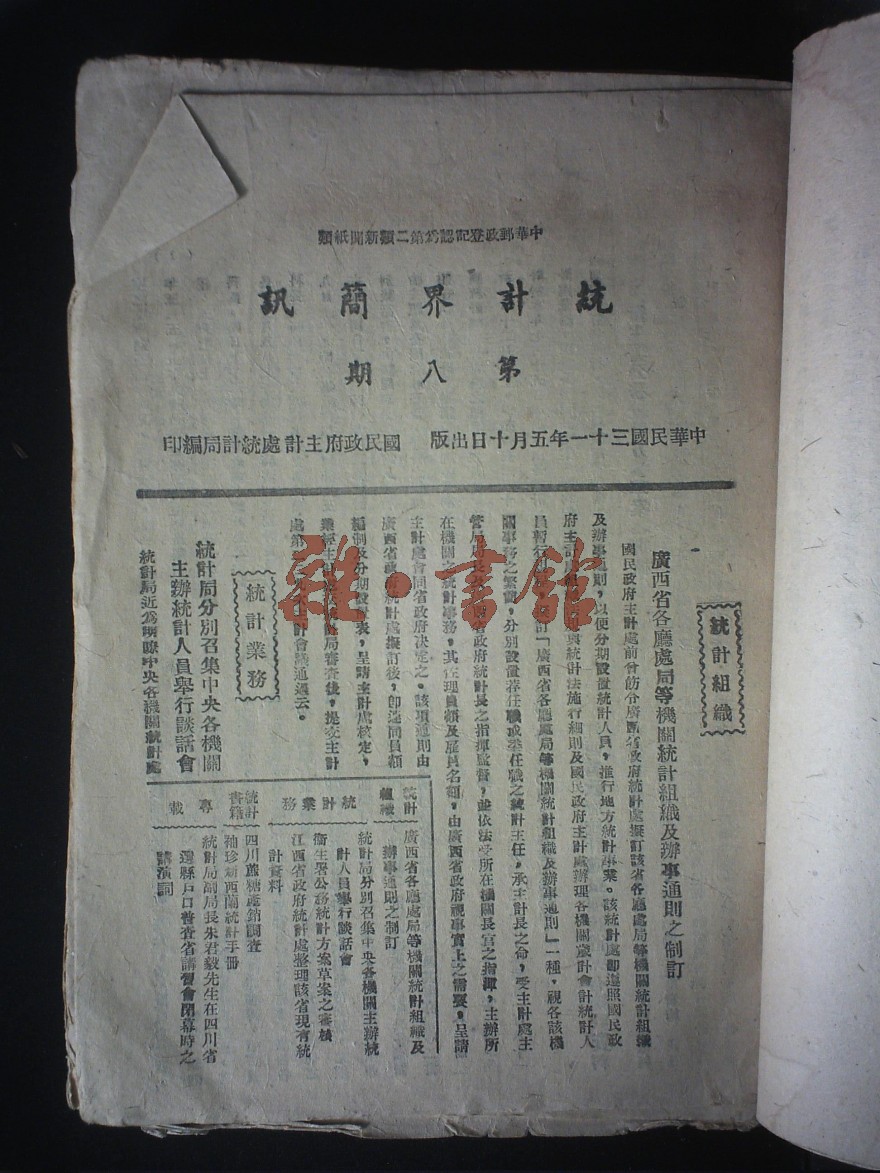 中華郵政登記認爲第二類新聞紙類
統計界簡訊
第八期
中華民國三十一年五月十日出版 國民政府主計處統計局編印
統計組織
廣西省各廳處局等機關統計組織及辦事通則之制訂
國民政府主計處前會飭令廣西省政府統計處擬訂該省各廳處局等機關統計組織
及辦事通則，以便分期設置統計人員，推行地方統計事業。該統計處卽遵照國民政
府主計處組織與統計法施行細則及國民政府主計處辦理各機關歲計會計統計人
員暫行計「廣西省各廳處局等機關統計組織及辦事通則」一種，視各該機
關事務之繁簡，分別設置荐任職或委任職之統計主任，承主計長之命，受主計處主
管局局長及省政府統計長之指揮監督，並依法受所在機關長官之指揮，主辦所
在機關之統計事務，其佐理員額及雇員名額，由廣西省政府視事實上之需要，呈請
主計處會同省政府決定之。該項通則由
廣西省政府統計處擬訂後，卽造同員額
編制及分期設置表，呈請主計處核定，
業經主計處局審查後，提交主計
處第計會議通過云。
統計業務
統計局分別召集中央各機關
主辦統計人員舉行談話會
統計局近爲明瞭中央各機關統計處
統計組織
廣西省各廳處局等機關統計組織及
辦事通則之制訂
統計業務
統計局分別召集中央各機關主辦統
計人員舉行談話會
衛生署公務統計方案草案之審核
江西省政府統計處整理該省現有統
計資料
統計書籍
四川蔗糖產銷調查
袖珍新西蘭統計手冊
專載
統計局副局長朱君毅先生在四川省
選縣戶口普查省講習會閉幕時之
講演詞
雜·書館